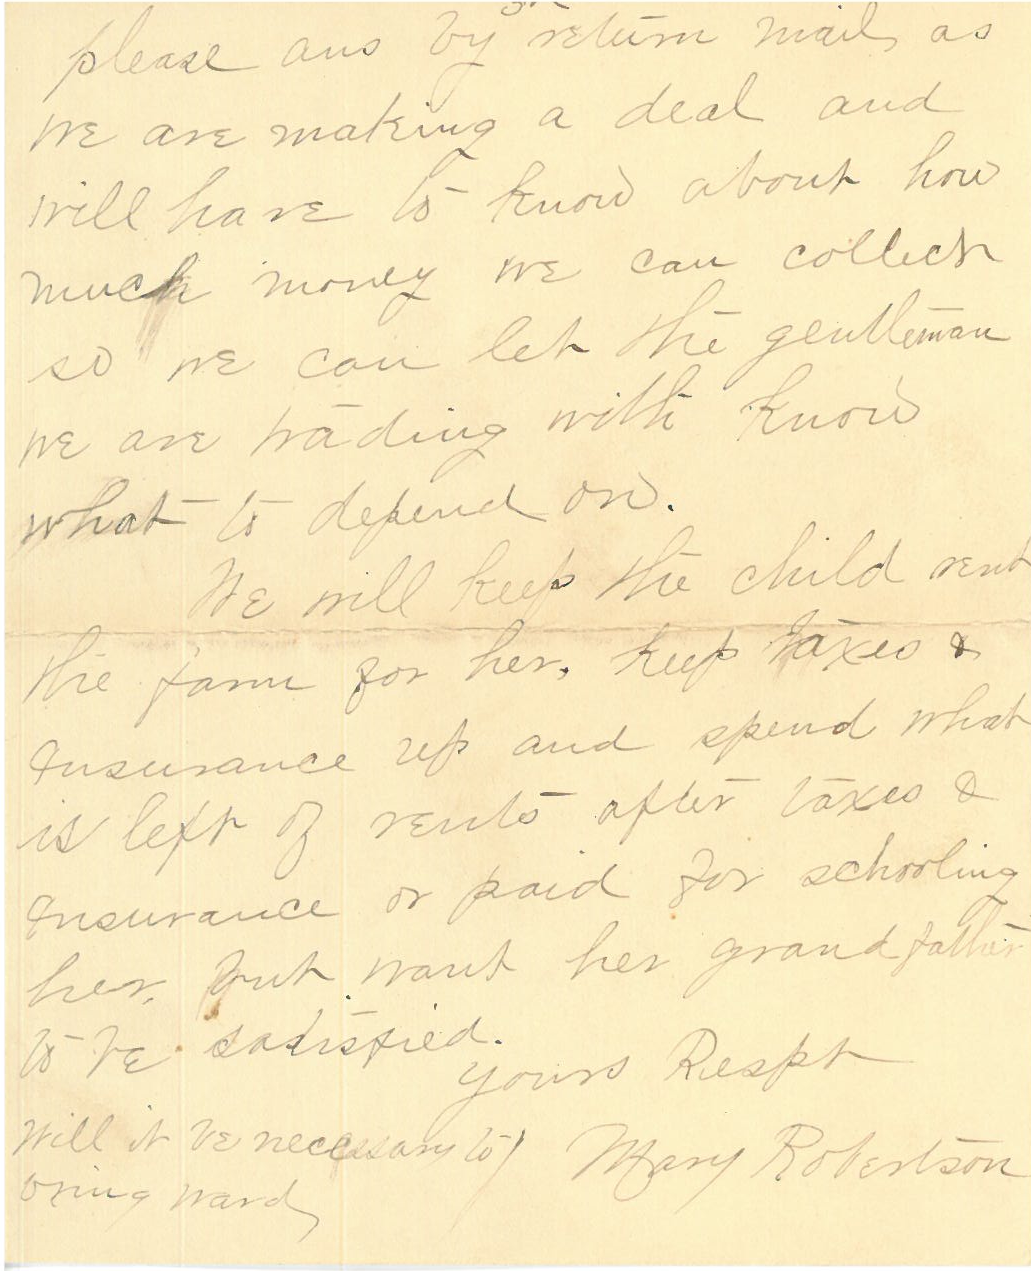 please ans by return mail, as
we are making a deal and
will have to know about how
much money we can collect
so we can let the gentleman
we are trading with know
what to depend on.
We will keep the child rent
the farm for her, keep taxes &
Insurance up and spend what
is left of rents after taxes &
Insurance or paid for schooling
her, but want her grandfather
to be satisfied.
Yours Respt
Mary Robertson
Will it be necessary to
bring ward,